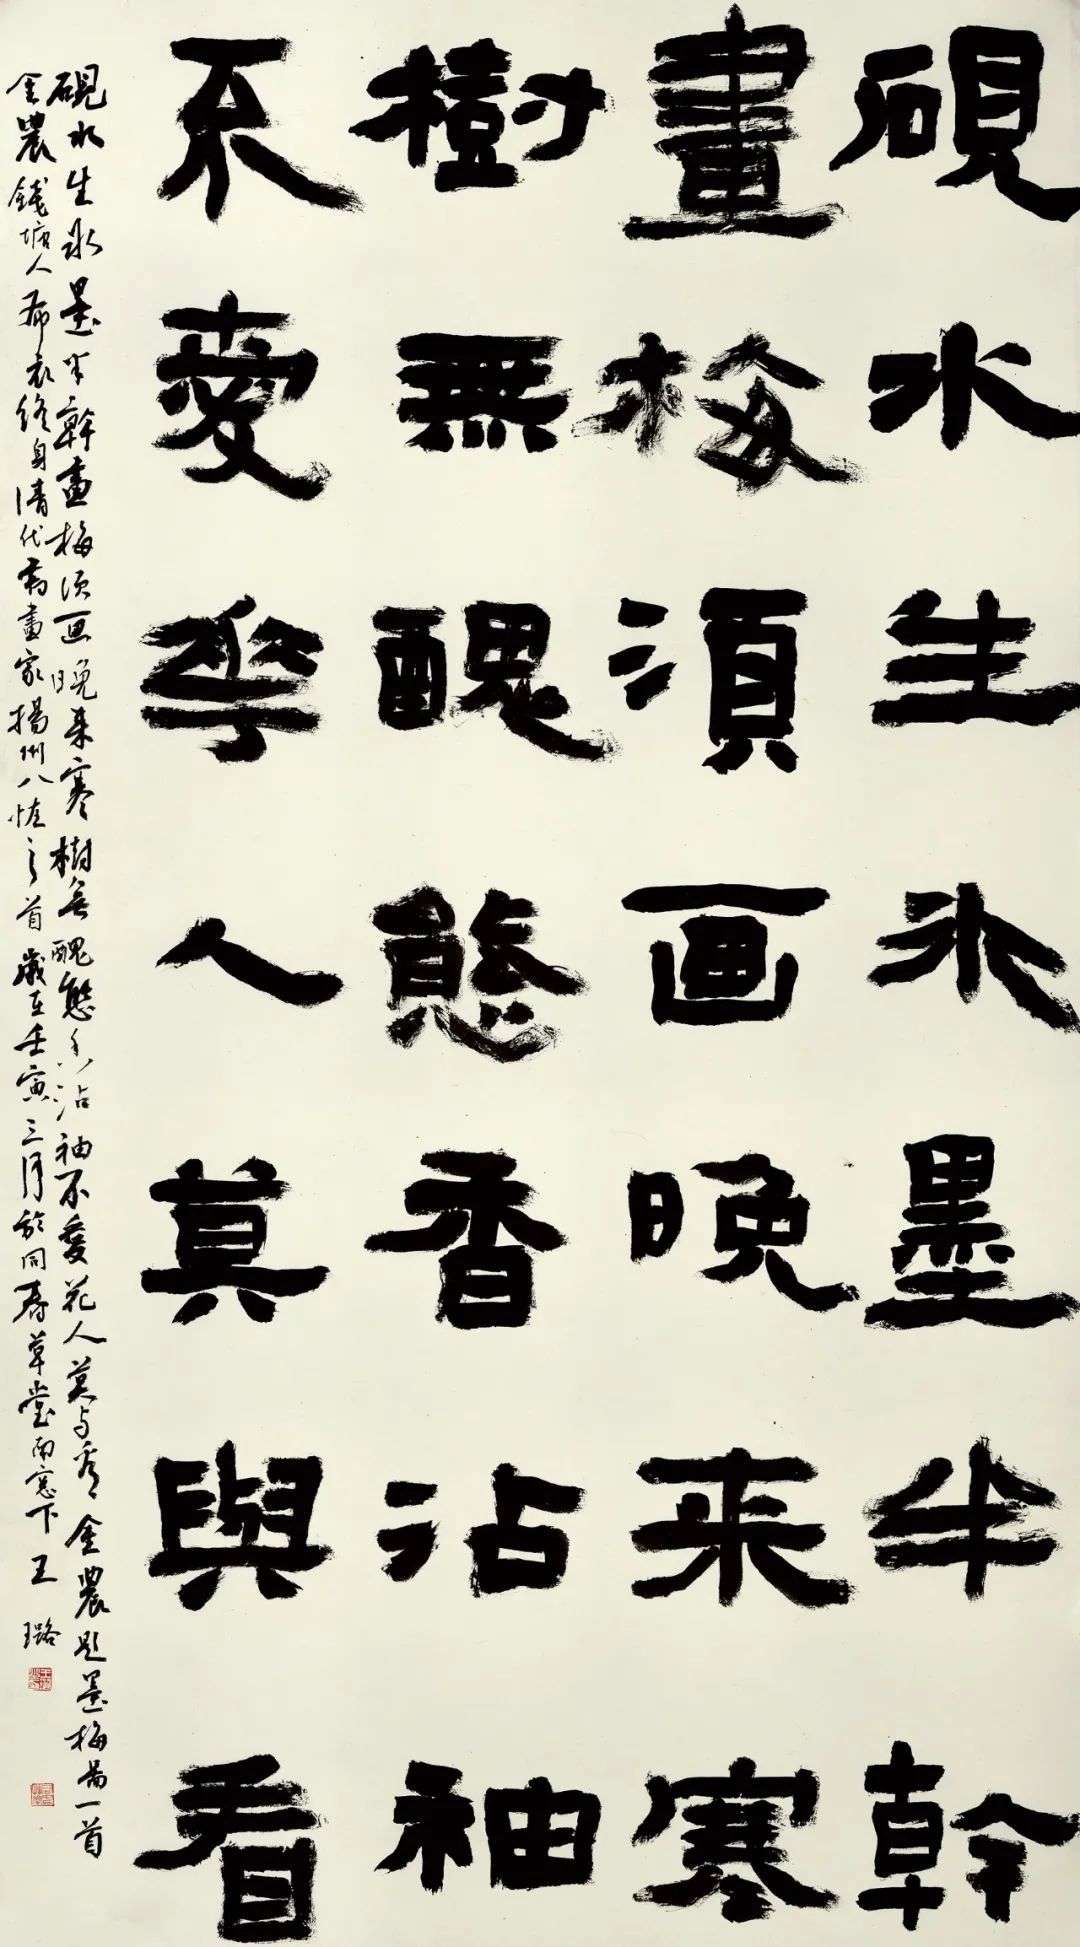 硯水生冰墨半幹
畫梅須画晚来寒
樹無醜態香沾袖
不愛華人莫與看
硯水生冰墨半幹畫梅须画晚来寒樹無醜態香沾袖不愛花人莫与看金農題墨梅圖一首
金農錢塘人布衣终身清代書畫家揚州八怪之首歲在壬寅三月於同草堂窓下王璐